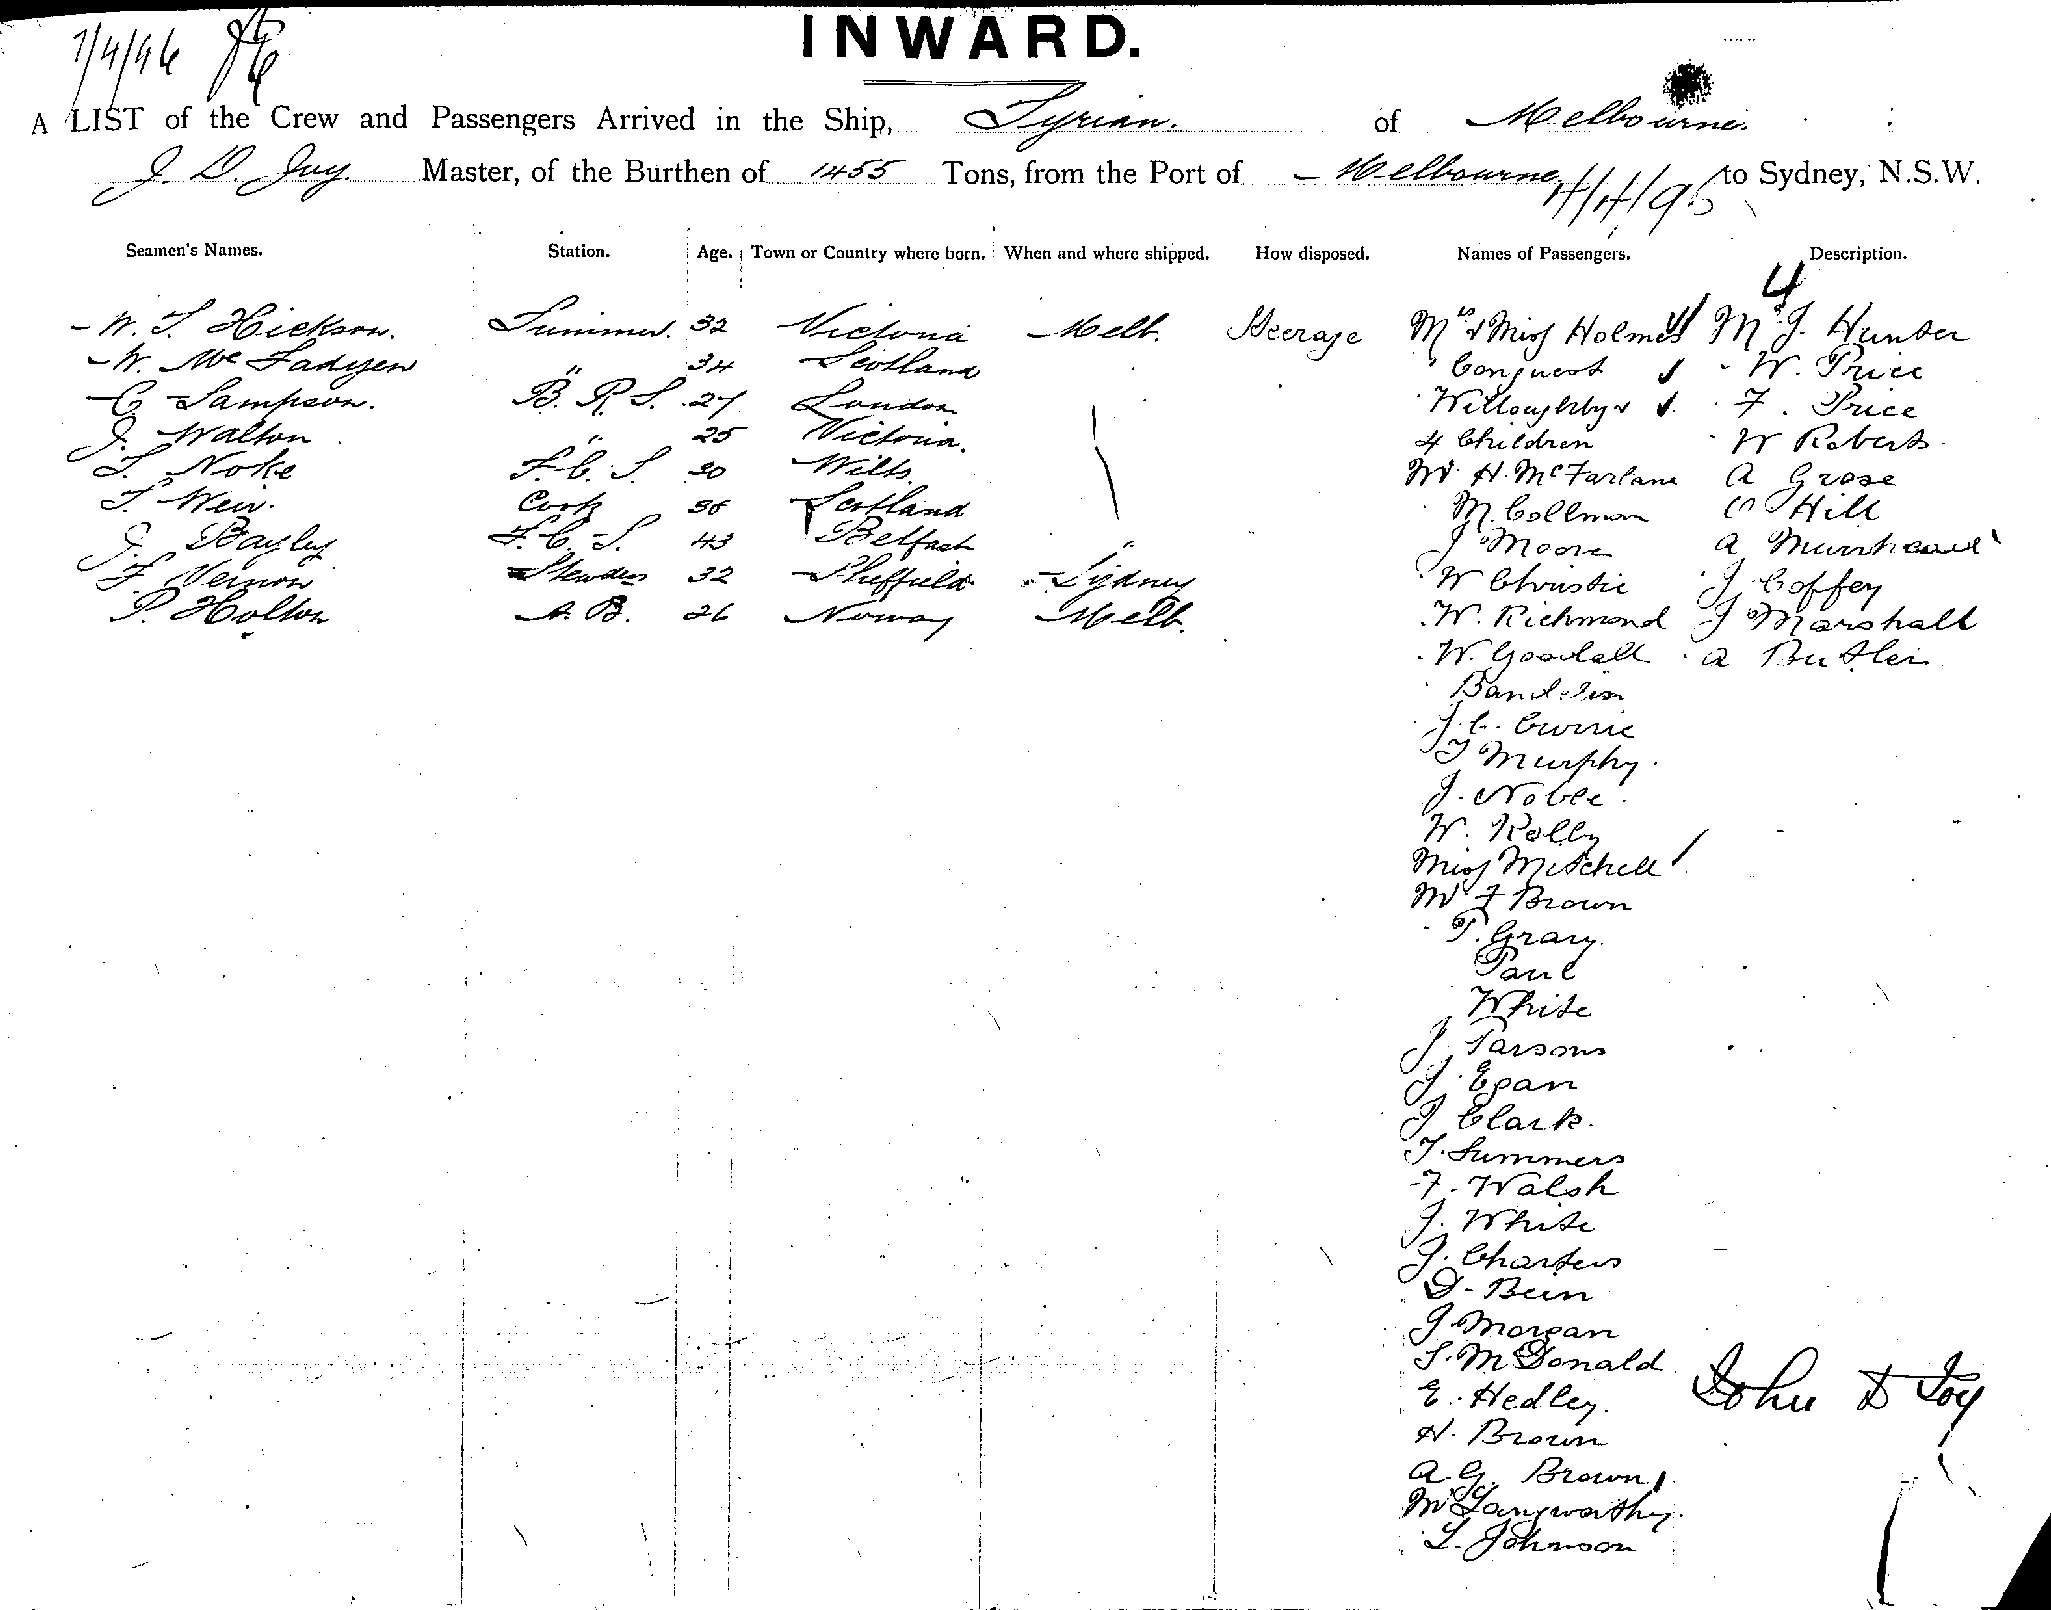 INWARD.
7/4/96
A LIST of the Crew and Passengers Arrived in the Ship, Syrian. of Melbourne.
J. D. Joy. Master, of the Burthen of 1455 Tons, from the Port of Melbourne 4/4/96 to Sydney, N.S.W.
Seamen's Names. Station. Age. Town or Country where born. When and where shipped. How disposed. Names of Passengers. Description.
4
W. S. Hickson. Trimmer. 32 Victoria Melb. Steerage Mrs & Miss Holmes Mr J. Hunter
W. McFadyen " 34 Scotland " Conquest " W. Price
C. Sampson. B. R. S. 27 London " Willoughby & " F. Price
J. Walton " 25 Victoria. 4 Children " W Roberts
T. Noke F. C. S. 30 Wilts. Mr H. McFarlane A Grose
T. Weir. Cook 36 Scotland " M. Collman C Hill
J. Bayley F. C. S. 43 Belfast " J Moore A Muirhead
F. Vernon Stewdess 32 Sheffield Sydney " W Christie J Coffey
P. Holton A. B. 26 Norway Melb. W. Richmond J Marshall
W. Goodall A Butler
J. C. Currie
T Murphy.
J. Noble.
W. Kelly
Miss Mitchell
Mr F Brown
" T. Grary.
Paul
White
J. Parsons
J. Egan
J Clark.
T. Summers
F. Walsh
J. White
J. Charters
D. Bein
J Morgan
S. McDonald
E. Hedley.
John D Joy
H. Brown
A. G. Brown
Mr Langworthy.
L. Johnson